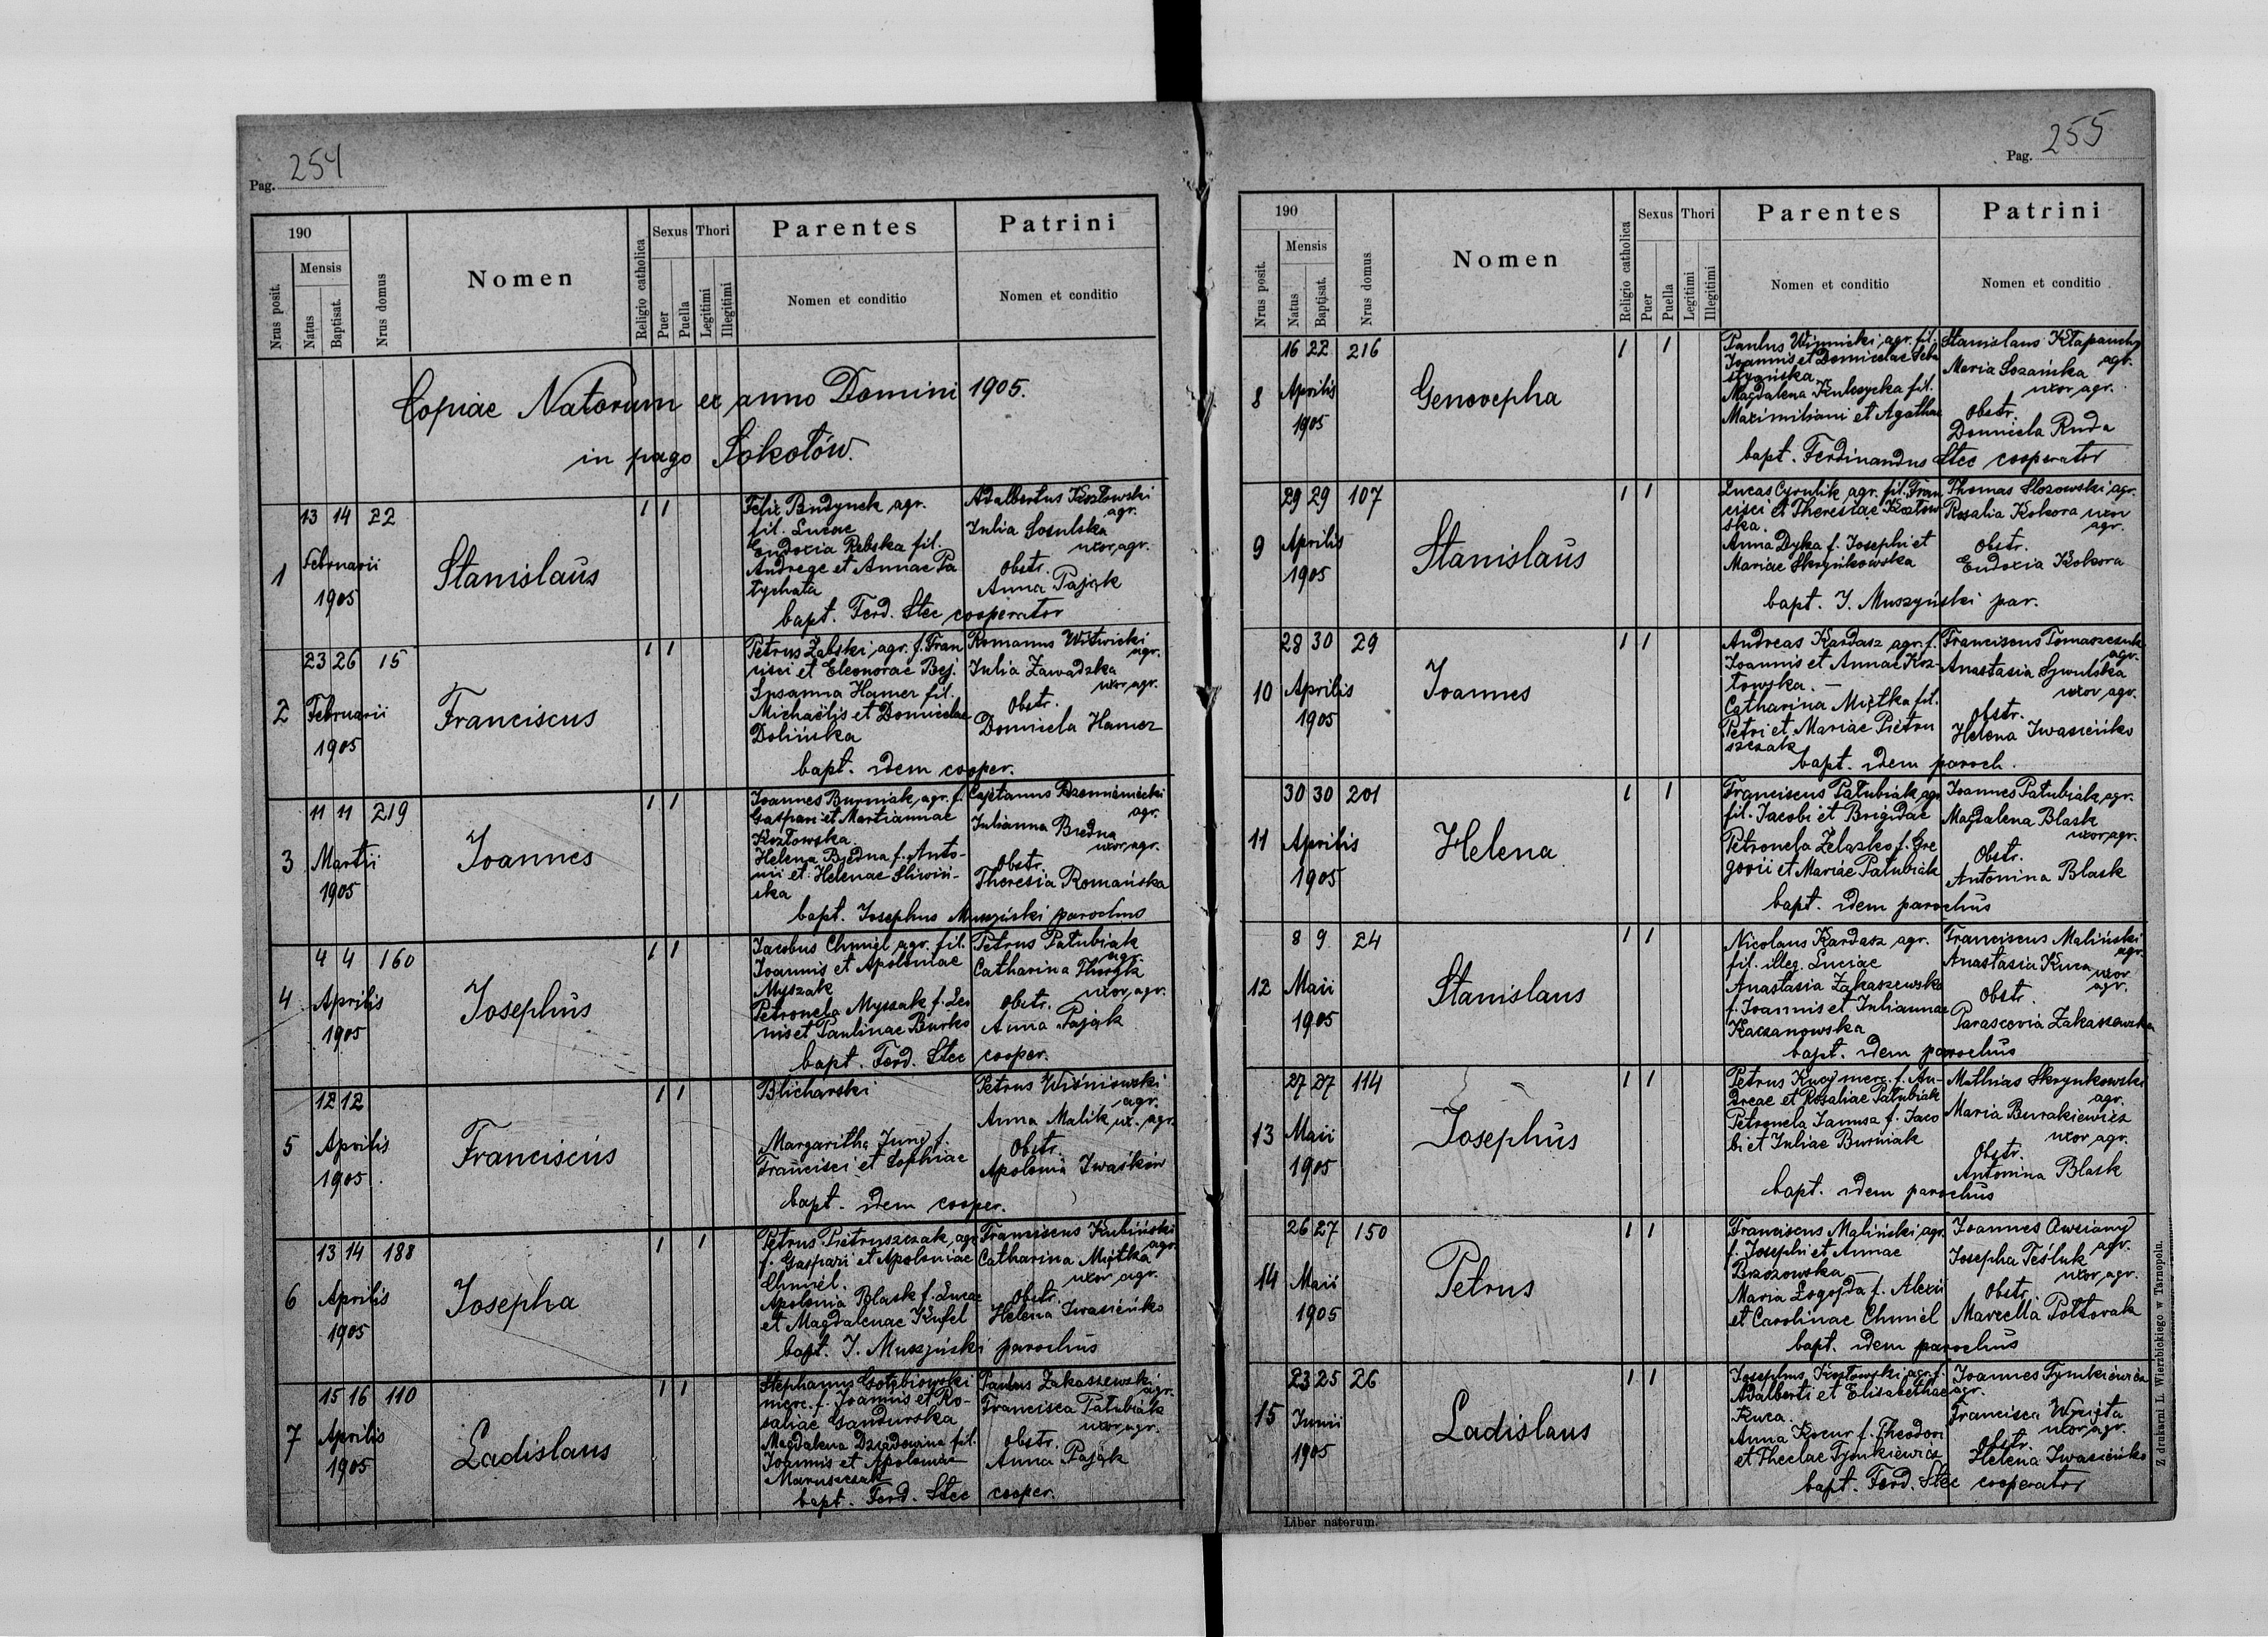 Pag. 254
190
Nrus posit.
Mensis
Natus
Baptisat.
Nrus domus
Nomen
Religio catholica
Sexus
Puer
Puella
Thori
Legitimi
Illegitimi
Parentes
Nomen et conditio
Patrini
Nomen et conditio
Copiae Natorum ex anno Domini 1905.
in pago Sokołów.
1
13 14 22
Februarii
1905
Stanislaus
1 1
Felix Budynek agr.
fil. Lucae
Eudoxia Rebska fil.
Andreae et Annae Pa
tychata
Adalbertus Kozłowski
agr.
Julia Sosulska
uxor agr.
Obstr.
Anna Pająk
bapt. Ferd. Stec cooperator
2
23 26 15
Februarii
1905
Franciscus
1 1
Petrus Żabski agr. f. Fran
cisci et Eleonorae Bej.
Susanna Hamer fil.
Michaëlis et Domicelae
Dolińska
Romanus Witwicki
agr.
Julia Zawadzka
uxor agr.
Obstr.
Domicela Hamer
bapt. idem cooper.
3
11 11 219
Martii
1905
Joannes
1 1
Joannes Burniak agr. f.
Gaspari et Martiannae
Kozłowska.
Helena Biedna f. Anto-
nii et Helenae Śliwiń-
ska
Cajetanus
agr.
Julianna Biedna
uxor agr.
Obstr.
Theresia Romańska
bapt. Josephus Muszyński parochus
4
4 4 160
Aprilis
1905
Josephus
1 1
Jacobus Chmiel agr. fil.
Joannis et Apoloniae
Myszak
Petronela Myszak f. Leo
nis et Paulinae Burko
Petrus Patubiak
agr.
Catharina
uxor agr.
Obstr.
Anna Pająk
bapt. Ferd. Stec cooper.
5
12 12
Aprilis
1905
Franciscus
1 1
Blicharski
Margaritha Jung f.
Francisci et Sophiae
Petrus Wiśniowski
agr.
Anna Malik ux. agr.
Obstr.
Apolonia Iwaśków
bapt. idem cooper.
6
13 14 188
Aprilis
1905
Josepha
1 1
Petrus Pietruszczak, agr
f. Gaspari et Apoloniae
Chmiel.
Apolonia Blask f. Lucae
et Magdalenae Kufel
Franciscus Kubiński
agr.
Catharina Miętka
uxor agr.
Obstr.
Helena Iwasieńko
bapt. J. Muszyński parochus
7
15 16 110
Aprilis
1905
Ladislaus
1 1
Stephanus Gołębiowski
merc. f. Joannis et Ro-
saliae Gandurska
Magdalena Dziadowina fil.
Joannis et Apoloniae
Maruszczak
Paulus Zakaszewski
agr.
Francisca Patubiak
uxor agr.
Obstr.
Anna Pająk
bapt. Ferd. Stec cooper.
Pag. 255
190
Nrus posit.
Mensis
Natus
Baptisat.
Nrus domus
Nomen
Religio catholica
Sexus
Puer
Puella
Thori
Legitimi
Illegitimi
Parentes
Nomen et conditio
Patrini
Nomen et conditio
8
16 22 216
Aprilis
1905
Genovepha
1 1
Paulus Winnicki agr. fil.
Joannis et Domicelae Seba
styańska
Magdalena Kulczycka fil.
Maximiliani et Agathae
Stanislaus Kłapauchy
agr.
Maria Sozańska
uxor agr.
Obstr.
Domicela Ruda
bapt. Ferdinandus Stec cooperator
9
29 29 107
Aprilis
1905
Stanislaus
1 1
Lucas Cyrulik agr. fil. Fran
cisci et Theresiae Kozłow
ska.
Anna Dyka f. Josephi et
Mariae Skrynkowska
Thomas Slozowski agr.
Rosalia Kokora uxor
agr.
Obstr.
Eudoxia Kokora
bapt. J. Muszyński par.
10
28 30 29
Aprilis
1905
Joannes
1 1
Andreas Kardasz agr. f.
Joannis et Annae Koz-
łowska. —
Catharina Miętka fil.
Petri et Mariae Pietru
szczak
Franciscus Tomaszczuk
agr.
Anastasia
uxor agr.
Obstr.
Helena Iwasieńko
bapt. idem paroch.
11
30 30 201
Aprilis
1905
Helena
1 1
Franciscus Patubiak agr
fil. Jacobi et Brigidae
Petronela Żelazko f. Gre
gorii et Mariae Patubiak
Joannes Patubiak agr.
Magdalena Blask
uxor agr.
Obstr.
Antonina Blask
bapt. idem parochus
12
8 9 24
Maii
1905
Stanislaus
1 1
Nicolaus Kardasz agr.
fil. illeg. Luciae
Anastasia Zakaszewska
f. Joannis et Juliannae
Kaczanowska
Franciscus Maliński
agr.
Anastasia Kuca uxor
agr.
Obstr.
Parascevia Zakaszewska
bapt. idem parochus
13
27 27 114
Maii
1905
Josephus
1 1
Petrus Kucy merc. f. An-
dreae et Rosaliae Patubiak
Petronela Janusa f. Jaco
bi et Juliae Burniak
Mathias Skrynkowski
agr.
Maria Burakiewicz
uxor agr.
Obstr.
Antonina Blask
bapt. idem parochus
14
26 27 150
Maii
1905
Petrus
1 1
Franciscus Maliński agr.
f. Josephi et Annae
Brzozowska —
Maria Łogojda f. Alexii
et Carolinae Chmiel
Joannes Owsiany
agr.
Josepha Teśluk
uxor agr.
Obstr.
Marcella Połtorak
bapt. idem parochus
15
23 25 26
Junii
1905
Ladislaus
1 1
Josephus Kozłowski agr. f.
Adalberti et Elisabethae
Kuca.
Anna Kocur f. Theodori
et Theclae Tymkiewicz
Joannes Tymkiewicz
agr.
Francisca
uxor agr.
Obstr.
Helena Iwasieńko
bapt. Ferd. Stec cooperator
Liber natorum.
Z drukarni L. Wierzbickiego w Tarnopolu.